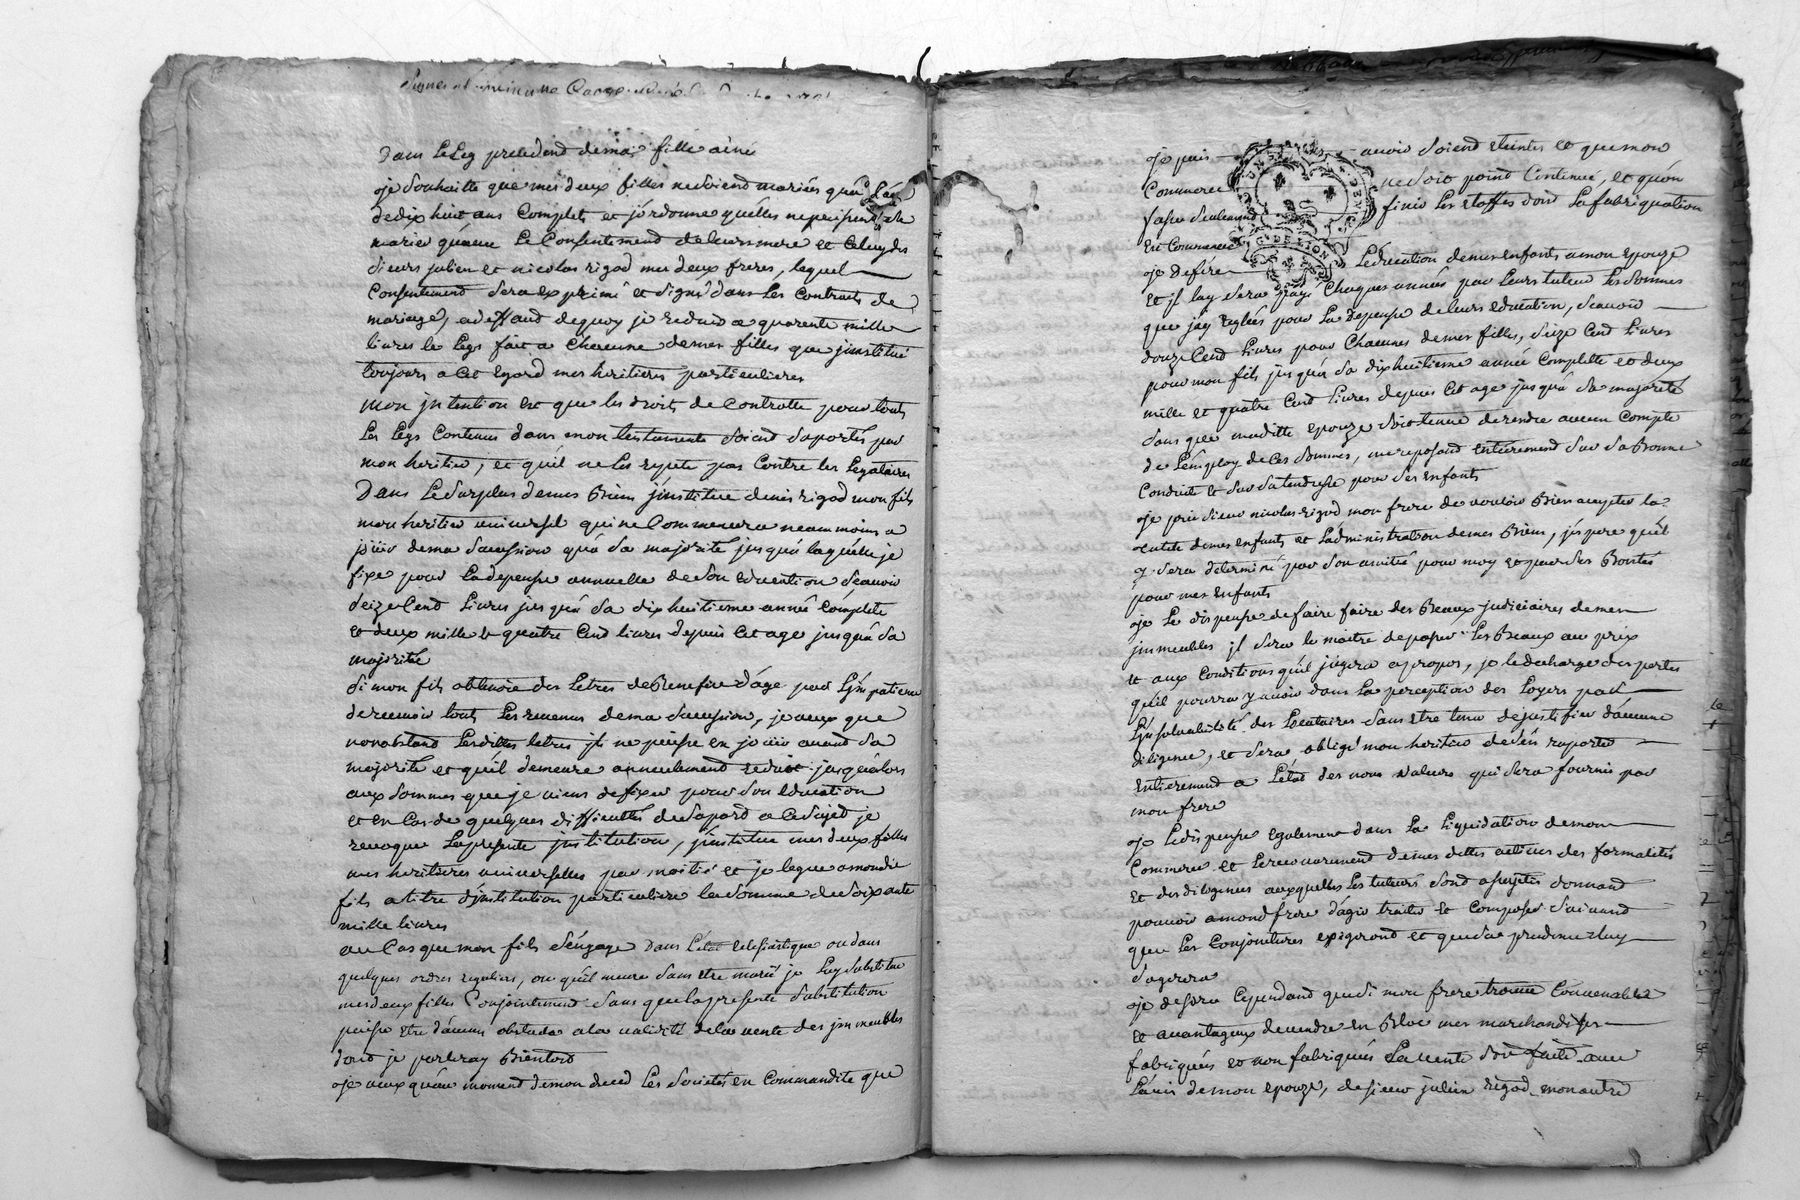 dans Le Leg precedend de ma fille ainé
Je Souhaitte que mes deux filles ne Soiend mariées qu'a L'age
de dix huit ans Complets et j'ordonne qu'elles ne puissent se
marier qu'avec Le Consentement de leur mere et Celuy des
Sieurs julien et nicolas rigod mes deux freres, lequel
Consentement Sera exprimé et Signé dans Les Contracts de
mariage, a deffaud de quoy je reduis a quarente mille
livres le Legs fait a Chacune de mes filles que j'institue
toujours a Cet Egard mes heritieres particulieres
Mon jntention Est que les droits de Controlle pour touts
Les Legs Contenus dans mon testamente Soiend Suportés par
mon heritier, et qu'il ne les repete pas Contre les Legataires
Dans Le Surplus de mes Biens j'institue denis rigod mon fils
mon heritier universel qui ne Commencera neammoins a
joüir de ma Succession qu'a Sa majorité jusqu'a laquelle je
fixe pour La depense annuelle de Son education Scavoir
Seize Cend Livres jusqu'a Sa dix huitieme année Complete
et deux mille et quatre Cend livres depuis Cet age jusqu'a Sa
majorité
Si mon fils obtenoie des Letres de Benefice d'age par L'jmpatience
de recevoir touts Les revenus de ma Succession, je veux que
nonobstand Lesdittes letres jl ne puisse en joüir avand Sa
majorité et qu'il demeure annuelement reduit jusqu'alors
aux Sommes que je viens de fixer pour Son Education
et en Cas de quelques difficultés de Sa pard a Ce Sujet je
revoque La presente jnstitution, j'institue mes deux filles
mes heritieres universelles par moitié et je legue a mondit
fils a titre d'jnstitution particuliere la Somme de Soixante
mille livres
au Cas que mon fils S'engage dans L'etat eclesiastique ou dans
quelques ordres reguliers, ou qu'il meure Sans etre marié je Luy Substitue
mes deux filles Conjointement Sans que la presente Substitution
puisse etre d'aucun obstacle a la validité de la vente des jmmeubles
dont je parleray Bientost
Je veux qu'au moment de mon deced Les Societés en Commandite que
Je puis avoir Soiend eteintes et que mon
Commerce ne Soit point Continué, et qu'on
fasse Seulement finir Les etoffes dont La fabriquation
Est Commencé
G. DE LION
Je Defére L'education de mes enfants a mon epouze
Et jl luy Sera payé Chaques années par Leurs tuteur Les Sommes
que j'ay reglées pour La depense de leurs education, Scavoir
douze Cend Livres pour Chacunes de mes filles, Seize Cend Livres
pour mon fils jusqu'a Sa dix huitieme année Complette et deux
mille et quatre Cend Livres depuis Cet age jusqu'a Sa majorité
Sans que maditte epouze Soit tenue de rendre aucun Compte
de L'employ de Ces Sommes, me reposand Entiérement Sur Sa Bonne
Conduite et Sur Sa tendresse pour Ses Enfants
Je prie Sieur nicolas rigod mon frere de vouloir Bien accepter la
tutele de mes enfants et L'administration de mes Biens, j'espere qu'il
y Sera determiné par Son amitié pour moy et par Ses Bontés
pour mes Enfants
Je Le dispense de faire faire des Beaux judiciaires de mes
jmmeubles jl Sera le maitre de passer Les Beaux au prix
et aux Conditions qu'il jugera apropos, je le decharge des pertes
qu'il pourra y avoir dans La perception des Loyers par
L'jnsolvabilité des Locataires Sans etre tenu de justifier d'aucune
diligence, et Sera obligé mon heritier de S'en raporter
Entierement a L'état des nons valeurs qui Sera fournie par
mon frere
Je Le dispense egalement dans La Liquidation de mon
Commerce et Le recouvrement de mes dettes actives des formalités
Et des diligences auxquelles Les tuteurs Sond assujetis donnand
pouvoir a mond frere d'agir traiter et Composer Suivand
que Les Conjonctures exigerond et que Sa prudence luy
Sugerera
Je desire Cependand que Si mon frere trouve Convenable
et avantageux de vendre en Bloc mes marchandises
fabriquées et non fabriquées La vente Soit faite avec
L'avis de mon epouze, de Sieur julien rigod mon autre